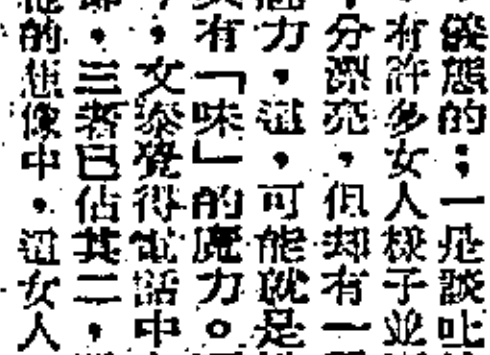 儀態的；一是談吐
有許多女人樣子並
分漂亮，但却有一
力，這，可能就是
有「味」的魔力。
，文泰覺得電話中
，三者已佔其二，
的想像中，這女人